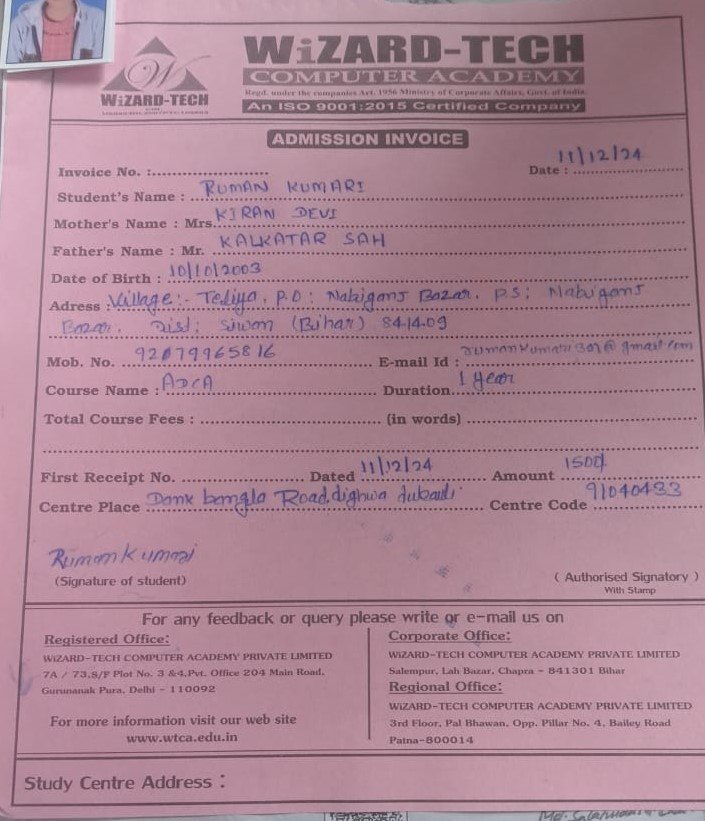 WiZARD-TECH
COMPUTER ACADEMY
Regd. under the companies Act. 1956 Ministry of Corporate Affairs, Govt. of India.
An ISO 9001:2015 Certified Company
WiZARD-TECH
ADMISSION INVOICE
Invoice No. :........................ Date : 11/12/24
Student's Name : RUMAN KUMARI
Mother's Name : Mrs. KIRAN DEVI
Father's Name : Mr. KALKATAR SAH
Date of Birth : 10/10/2003
Adress : Village:- Tediya, P.O: Nabiganj Bazar, P.S: Nabiganj
Bazar, Dist: Siwan (Bihar) 841409
Mob. No. 92079965816 E-mail Id : rumankumari301@gmail.com
Course Name : ADCA Duration 1 Year
Total Course Fees : ........................ (in words) ........................
First Receipt No. ........................ Dated 11/12/24 Amount 1500
Centre Place Road, dighwa dubauli Centre Code 91040433
Ruman Kumari
(Signature of student) ( Authorised Signatory )
With Stamp
For any feedback or query please write or e-mail us on
Registered Office:
WiZARD-TECH COMPUTER ACADEMY PRIVATE LIMITED
7A / 73,S/F Plot No. 3 &4,Pvt. Office 204 Main Road,
Gurunanak Pura, Delhi - 110092
For more information visit our web site
www.wtca.edu.in
Corporate Office:
WiZARD-TECH COMPUTER ACADEMY PRIVATE LIMITED
Salempur, Lah Bazar, Chapra - 841301 Bihar
Regional Office:
WiZARD-TECH COMPUTER ACADEMY PRIVATE LIMITED
3rd Floor, Pal Bhawan, Opp. Pillar No. 4, Bailey Road
Patna-800014
Study Centre Address :